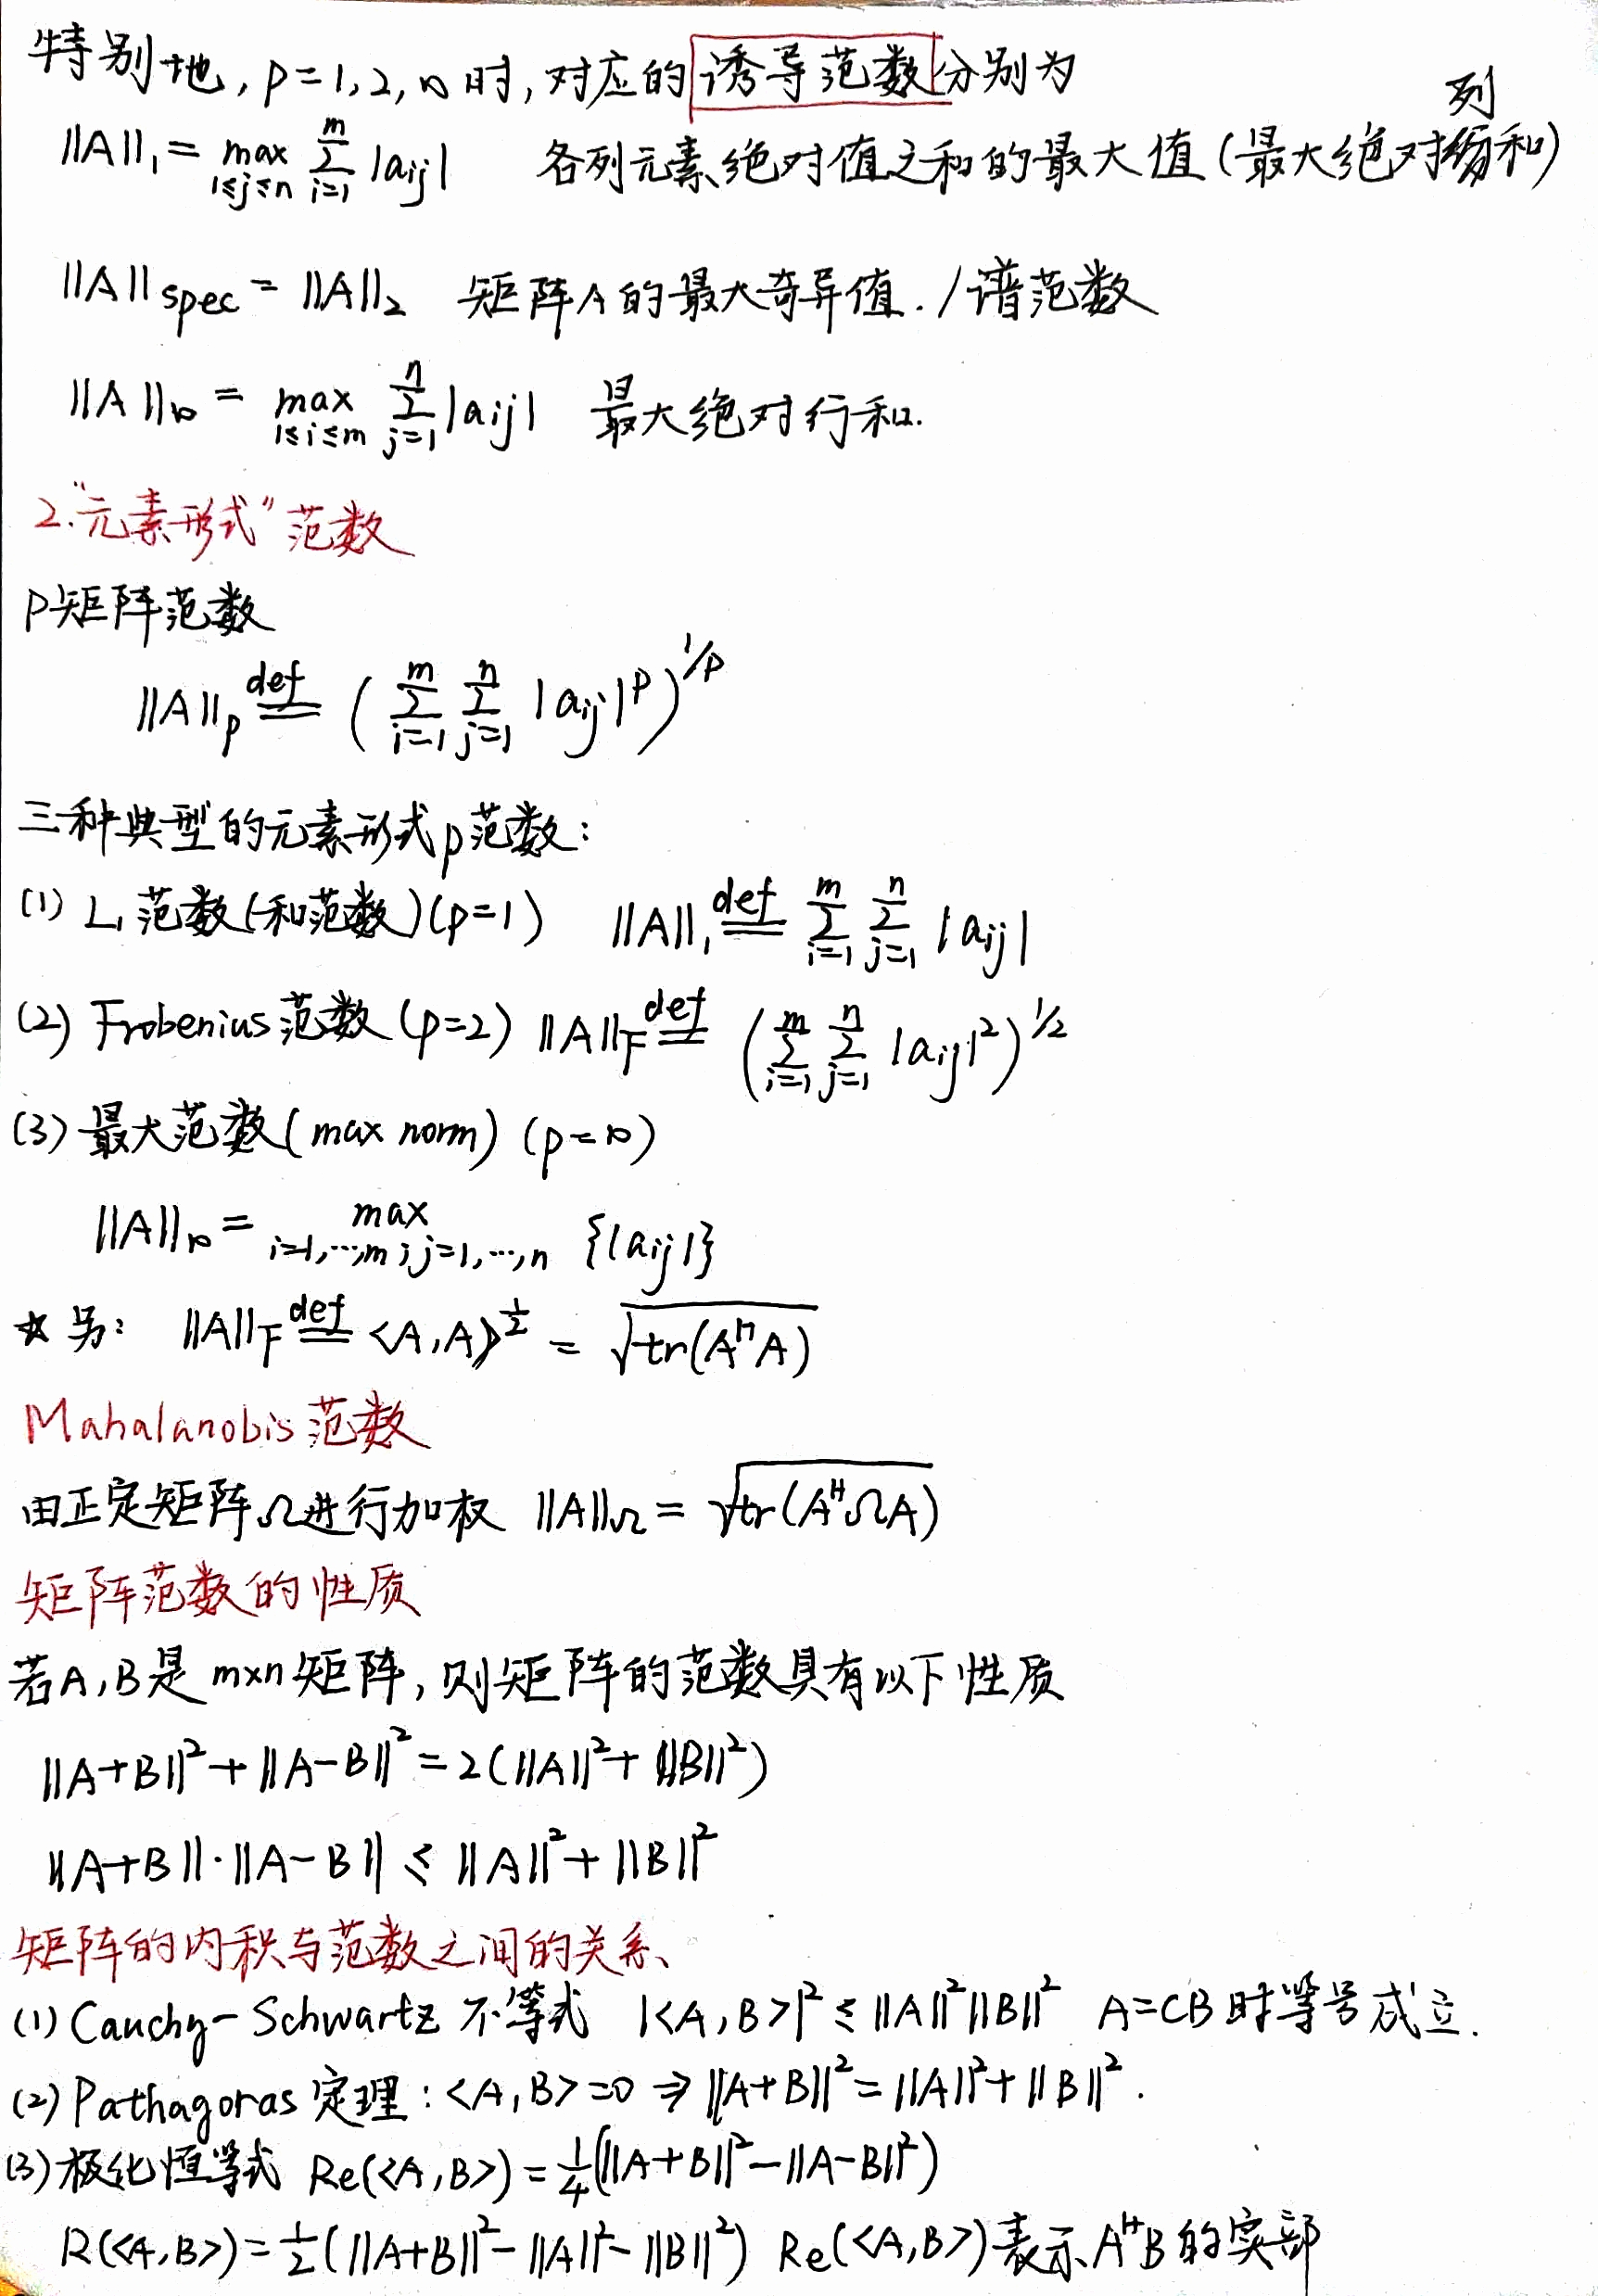 特别地,p=1,2,∞时,对应的诱导范数分别为
列
||A||₁ = max_{1≤j≤n} ∑_{i=1}^{m} |aij| 各列元素绝对值之和的最大值(最大绝对和)
||A||spec = ||A||₂ 矩阵A的最大奇异值./谱范数
||A||∞ = max_{1≤i≤m} ∑_{j=1}^{n} |aij| 最大绝对行和.
2."元素形式"范数
P矩阵范数
||A||p def= (∑_{i=1}^{m} ∑_{j=1}^{n} |aij|^p)^{1/p}
三种典型的元素形式p范数:
(1) L₁范数(和范数)(p=1) ||A||₁ def= ∑_{i=1}^{m} ∑_{j=1}^{n} |aij|
(2) Frobenius范数(p=2) ||A||F def= (∑_{i=1}^{m} ∑_{j=1}^{n} |aij|²)^{1/2}
(3) 最大范数(max norm) (p=∞)
||A||∞ = max_{i=1,⋯,m;j=1,⋯,n} {|aij|}
☆另: ||A||F def= <A,A>^{1/2} = √tr(A^H A)
Mahalanobis范数
由正定矩阵Ω进行加权 ||A||Ω = √tr(A^H ΩA)
矩阵范数的性质
若A,B是m×n矩阵,则矩阵的范数具有以下性质
||A+B||²+||A-B||²=2(||A||²+||B||²)
||A+B||·||A-B|| ≤ ||A||²+||B||²
矩阵的内积与范数之间的关系、
(1) Cauchy-Schwartz 不等式 |<A,B>|² ≤ ||A||²||B||² A=CB时等号成立.
(2) Pathagoras定理:<A,B>=0 ⇒ ||A+B||²=||A||²+||B||².
(3)极化恒等式 Re(<A,B>)=1/4(||A+B||²-||A-B||²)
R(<A,B>)=1/2(||A+B||²-||A||²-||B||²) Re(<A,B>)表示A^H B的实部